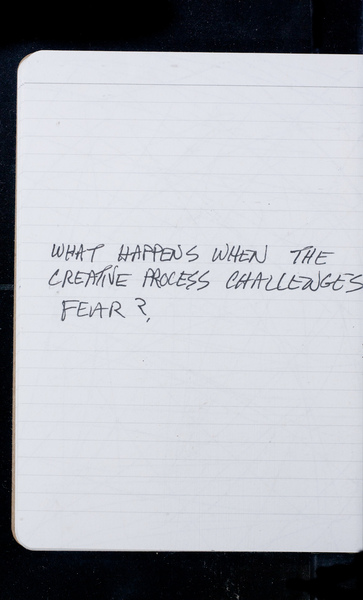 WHAT HAPPENS WHEN THE
CREATIVE PROCESS CHALLENGES
FEAR?